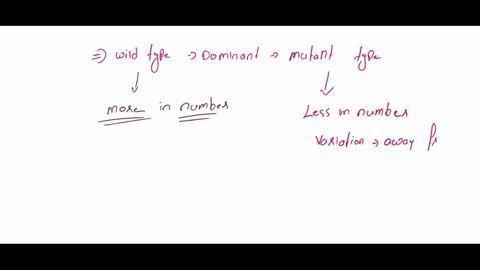 ⇒ wild type → Dominant → mutant type
↓ ↓
more in number Less in number
Variation → away